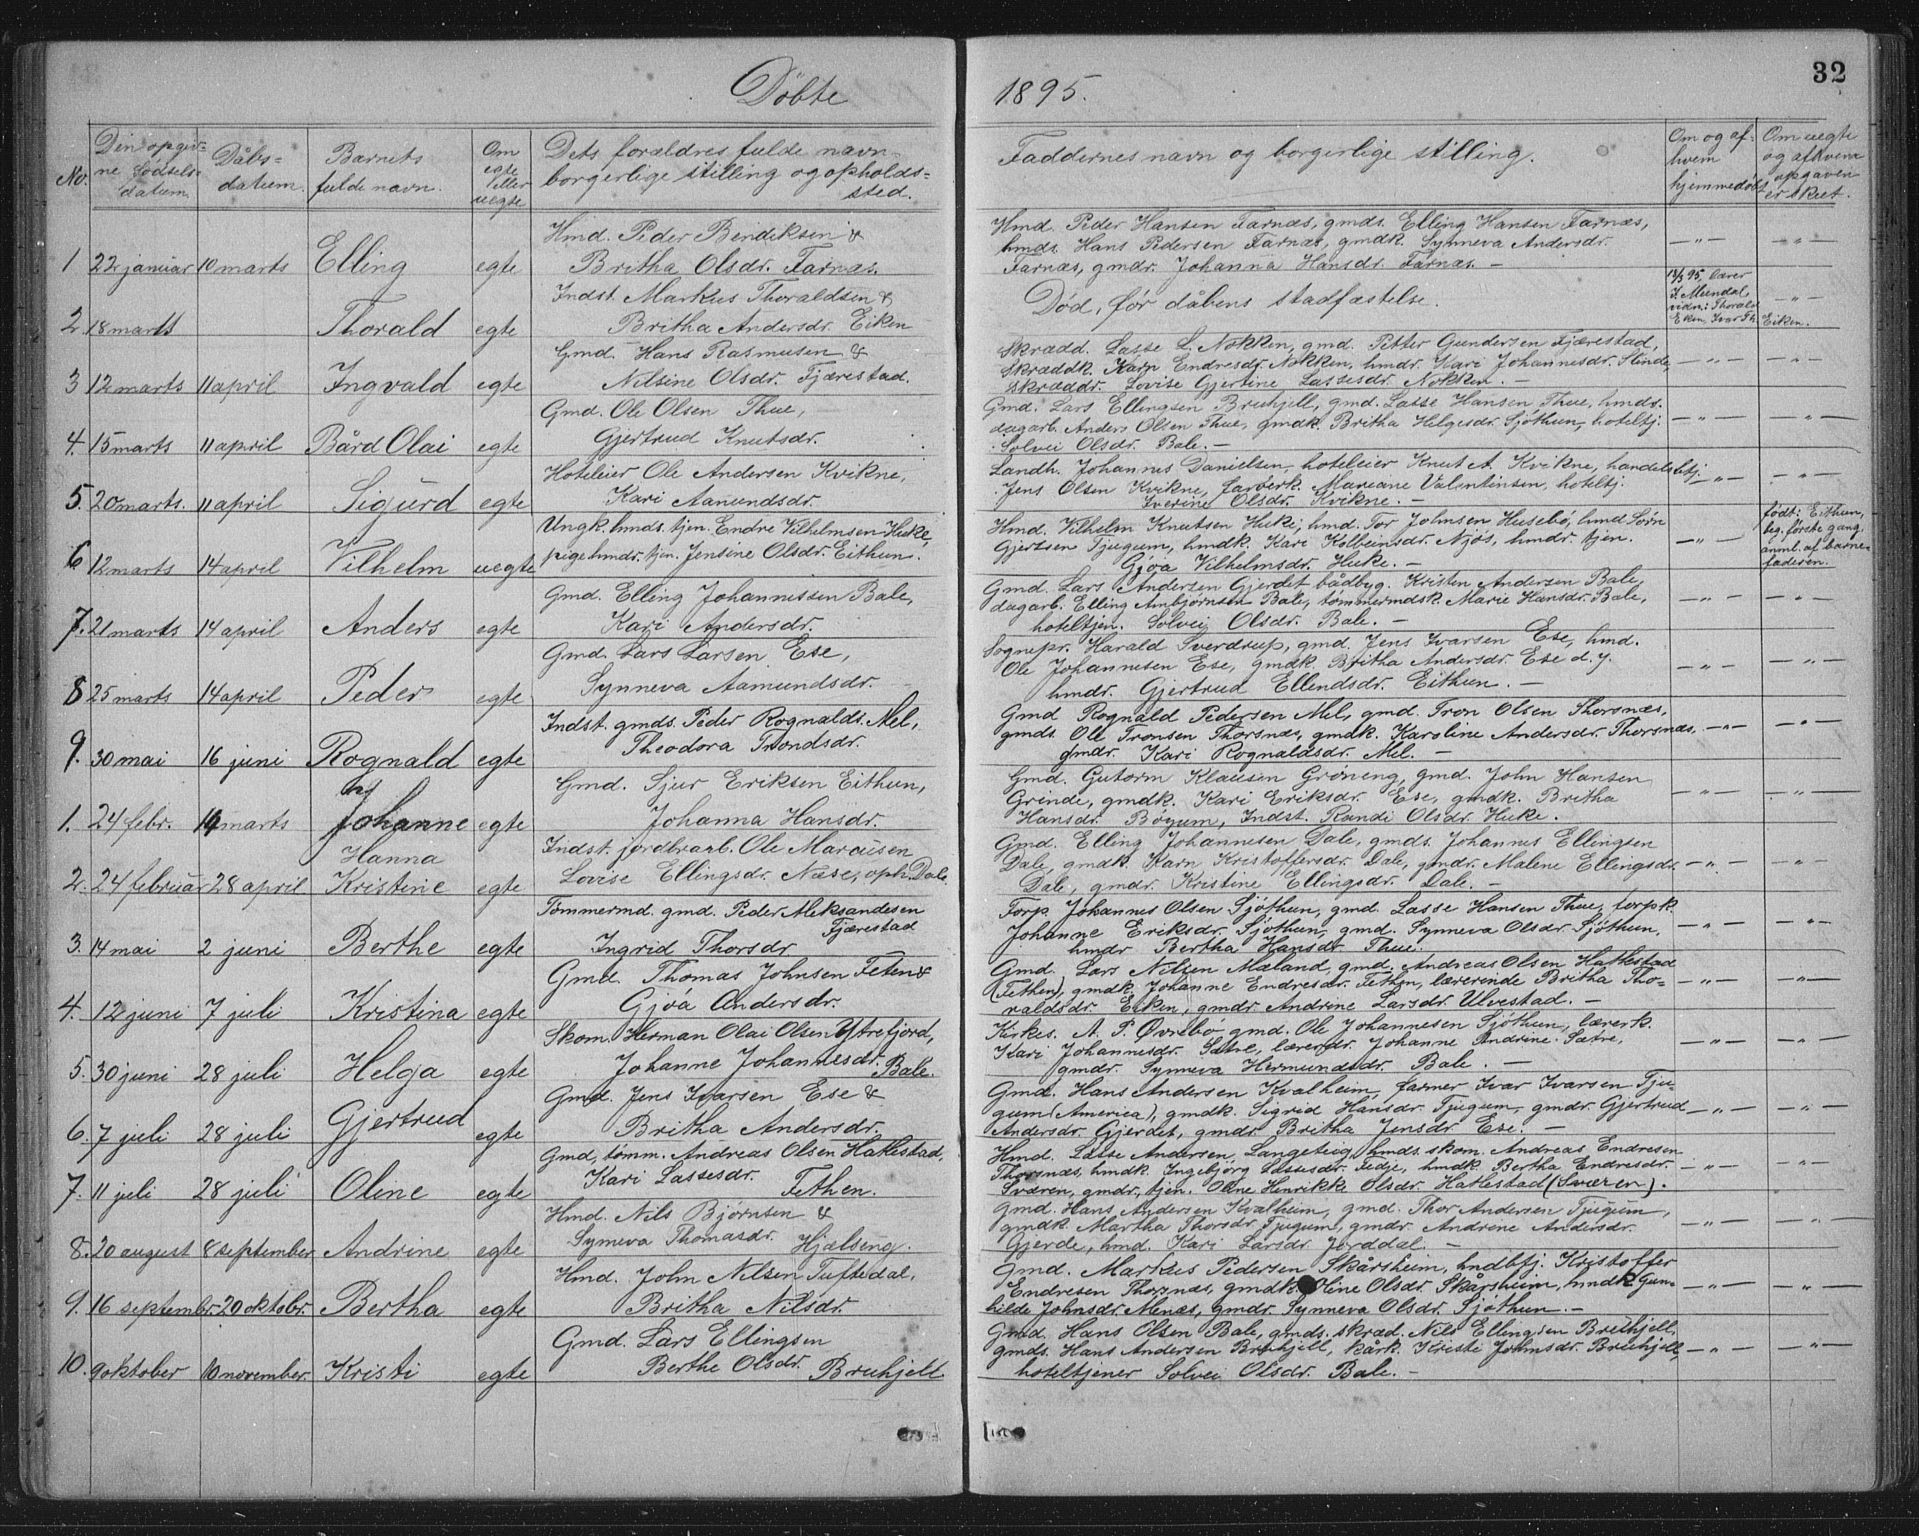 Døbte
1895.
32
No.
Den opgiv-
ne fødsels-
datum.
Dåbs-
datum.
Barnets
fulde navn.
Om
egte
eller
uegte
Dets forældres fulde navn
borgerlige stilling og opholds-
sted.
Faddernes navn og borgerlige stilling.
Om og af
hvem
hjemmedøbt
Om uegte
og af hvem
opgaven
er skeet.
Hmd. Peder Bendiksen &
1 22 januar 10 marts Elling egte Britha Olsdr. Farnæs.
Hmd. Peder Hansen Farnæs, gmds. Elling Hansen Farnæs,
hmds. Hans Pedersen Farnæs, gmdk. Synneva Andersdr.
Farnæs, gmdr. Johanna Hansdr. Farnæs. —
Indst. Markus Thoraldsen &
2 18 marts Thorald egte Britha Andersdr. Eiken
Død, før dåbens stadfæstelse.
18/3 95. Lærer
J. Mundal,
vidn: Thorald
Eken, Ivar Th. Eiken.
Gmd. Hans Rasmusen &
3 12 marts 11 april Ingvald egte Nilsine Olsdr. Fjærestad.
Skrædd. Lasse L. Nokken, gmd. Petter Gundersen Fjærestad,
skræddk. Karn Endresdr. Nokken, hmdr. Kari Johannesdr. Stinde,
skræddr. Lovise Gjertine Lassesdr. Nokken. —
Gmd. Ole Olsen Thue,
4. 15 marts 11 april Bård Olai egte Gjertrud Knutsdr.
Gmd. Lars Ellingsen Brekjell, gmd. Lasse Hansen Thue, hmds.
dagarb. Anders Olsen Thue, gmdk. Britha Helgesdr. Sjøthun, hoteltj.
Solvei Olsdr. Bale. —
Hoteleier Ole Andersen Kvikne,
5. 20 marts. 11 april Sigurd egte Kari Aamundsdr.
Landh. Johannes Danielsen, hoteleier Knut A. Kvikne, handelsbtj.
Jens Olsen Kvikne, farverk. Mariane Valentinsen, hoteltj.
Iverine Olsdr. Kvikne. —
Ungk. hmds. tjen. Endre Vilhelmsen Huke,
6 12 marts 14 april Vilhelm uegte pige hmdr. tjen. Jensine Olsdr. Eithun.
Hmd. Vilhelm Knutsen Huke, hmd. Tor Johnsen Husebø, hmd Sørn
Gjertsen Tjugum, hmdk. Kari Kolbeinsdr. Njøs, hmdr. tjen.
Gjøa Vilhelmsdr. Huke. —
født: Eithun,
bg. første gang
anml. af barne-
faderen.
Gmd. Elling Johannessen Bale,
7. 21 marts 14 april Anders egte Kari Andersdr.
Gmd. Lars Andersen Gjerdet bådbyg. Kristen Andersen Bale,
dagarb. Elling Anbjørnsen Bale, tømmermdsk. Marie Hansdr. Bale,
hoteltjen. Solvei Olsdr. Bale. —
Gmd. Lars Larsen Ese,
8 25 marts 14 april Peder egte Synneva Aamundsdr.
Sognepr. Harald Sverdrup, gmd. Jens Ivarsen Ese, hmd.
Ole Johannesen Ese, gmdk. Britha Andersdr. Ese d. y.
hmdr. Gjertrud Ellendsdr. Eithun. —
Indst. gmds. Peder Rognalds. Mel,
9. 30 mai 16 juni Rognald egte Theodora Trondsdr.
Gmd Rognald Pedersen Mel, gmd. Tron Olsen Thorsnæs,
gmds. Ole Tronsen Thorsnæs, gmdk. Karoline Andersdr. Thorsnæs,
gmdr. Kari Rognaldsdr. Mel. —
Gmd. Sjur Eriksen Eithun,
1. 24 febr. 14 marts Johanne egte Johanna Hansdr.
Gmd. Gutorm Klausen Grøneng, gmd. John Hansen
Grinde, gmdk. Kari Eriksdr. Ese, gmdk. Britha
Hansdr. Bøyum, Indst. Randi Olsdr. Huke.
Indst. jordbrarb. Ole Marcusen
2. 24 februar 28 april Hanna Kristine egte Lovise Ellingsdr. Næse, oph. Dale.
Gmd. Elling Johannesen Dale, gmds. Johannes Ellingsen
Dale, gmdk. Karn Kristoffersdr. Dale, gmdr. Malene Ellingsdr.
Dale, gmdr. Kristine Ellingsdr. Dale. —
Tømmermd. gmd. Peder Aleksandesen
Fjærestad
3. 14 mai 2 juni Berthe egte Ingrid Thorsdr
Forp. Johannes Olsen Sjøthun, gmd. Lasse Hansen Thue, forpk.
Johanne Eriksdr. Sjøthun, gmd. Synneva Olsdr. Sjøthun,
hmdr Bertha Hansdr. Thue.
Gmd. Thomas Johnsen Feten &
4. 12 juni 7 juli Kristina egte Gjøa Andersdr.
Gmd. Lars Nilsen Mæland, gmd. Andreas Olsen Hatlestad
(Fethen), gmdk. Johanne Endresdr. Fethen, lærerende Britha Tho-
raldsdr. Eiken, gmdr. Andrine Larsdr. Ulvestad. —
Skom. Herman Olai Olsen Ytrefjord,
5. 30 juni 28 juli Helga egte Johanne Johannesdr. Bale.
Kirkes. A. P. Øvrebø gmd. Ole Johannesen Sjøthun, lærerk.
Kari Johannesdr. Sætre, lærerdr. Johanne Andrine Sætre,
gmdr. Synneva Hermundsdr. Bale. —
Gmd. Jens Ivarsen Ese &
6. 7 juli 28 juli Gjertrud egte Britha Andersdr.
Gmd. Hans Andersen Kvalheim, farmer Ivar Ivarsen Tju-
gum (America), gmdk. Sigrid Hansdr. Tjugum, gmdr. Gjertrud
Andersdr. Gjerdet, gmdr. Britha Jensdr. Ese. —
Gmd, tømm. Andreas Olsen Hatlestad,
7. 11 juli 28 juli Oline egte Kari Lassesdr. Fethen.
Hmd. Lasse Andersen, Langeteig, hmds. skom. Andreas Endresen
Thorsnæs, hmdk. Ingebjørg Lassesdr. Fedje, hmdk. Bertha Endresdr.
Sværen, gmdr. tjen. Oline Henrikke Olsdr. Hatlestad (Sværen).
Hmd. Nils Bjørnsen &
8. 20 august 8 september Andrine egte Synneva Thomasdr. Hjælseng.
Gmd. Hans Andersen Kvalheim, gmd. Thor Andersen Tjugum,
gmdk. Martha Thorsdr. Tjugum, gmdr. Andrine Andersdr.
Gjerde, hmd. Kari Larsdr. Jorddal. —
Hmd. John Nilsen Tuftedal,
9. 16 septembr. 20 oktobr. Bertha egte Britha Nilsdr.
Gmd. Markus Pedersen Skårsheim, hndbtj. Kristoffer
Endresen Thorsnæs, gmdk. Oline Olsdr. Skårsheim, hmdk Gun-
hilde Johnsdr. Menæs, gmdr. Synneva Olsdr. Sjøthun. —
Gmd. Lars Ellingsen
10. 9 oktober 10 november. Kristi egte Berthe Olsdr. Brekjell
Gmd. Hans Olsen Bale, gmds. skræd. Nils Ellingsen Brekjell,
gmds. Hans Andersen Brekjell, kårk. Kristi Johnsdr. Brekjell,
hoteltjener Solvei Olsdr. Bale. —